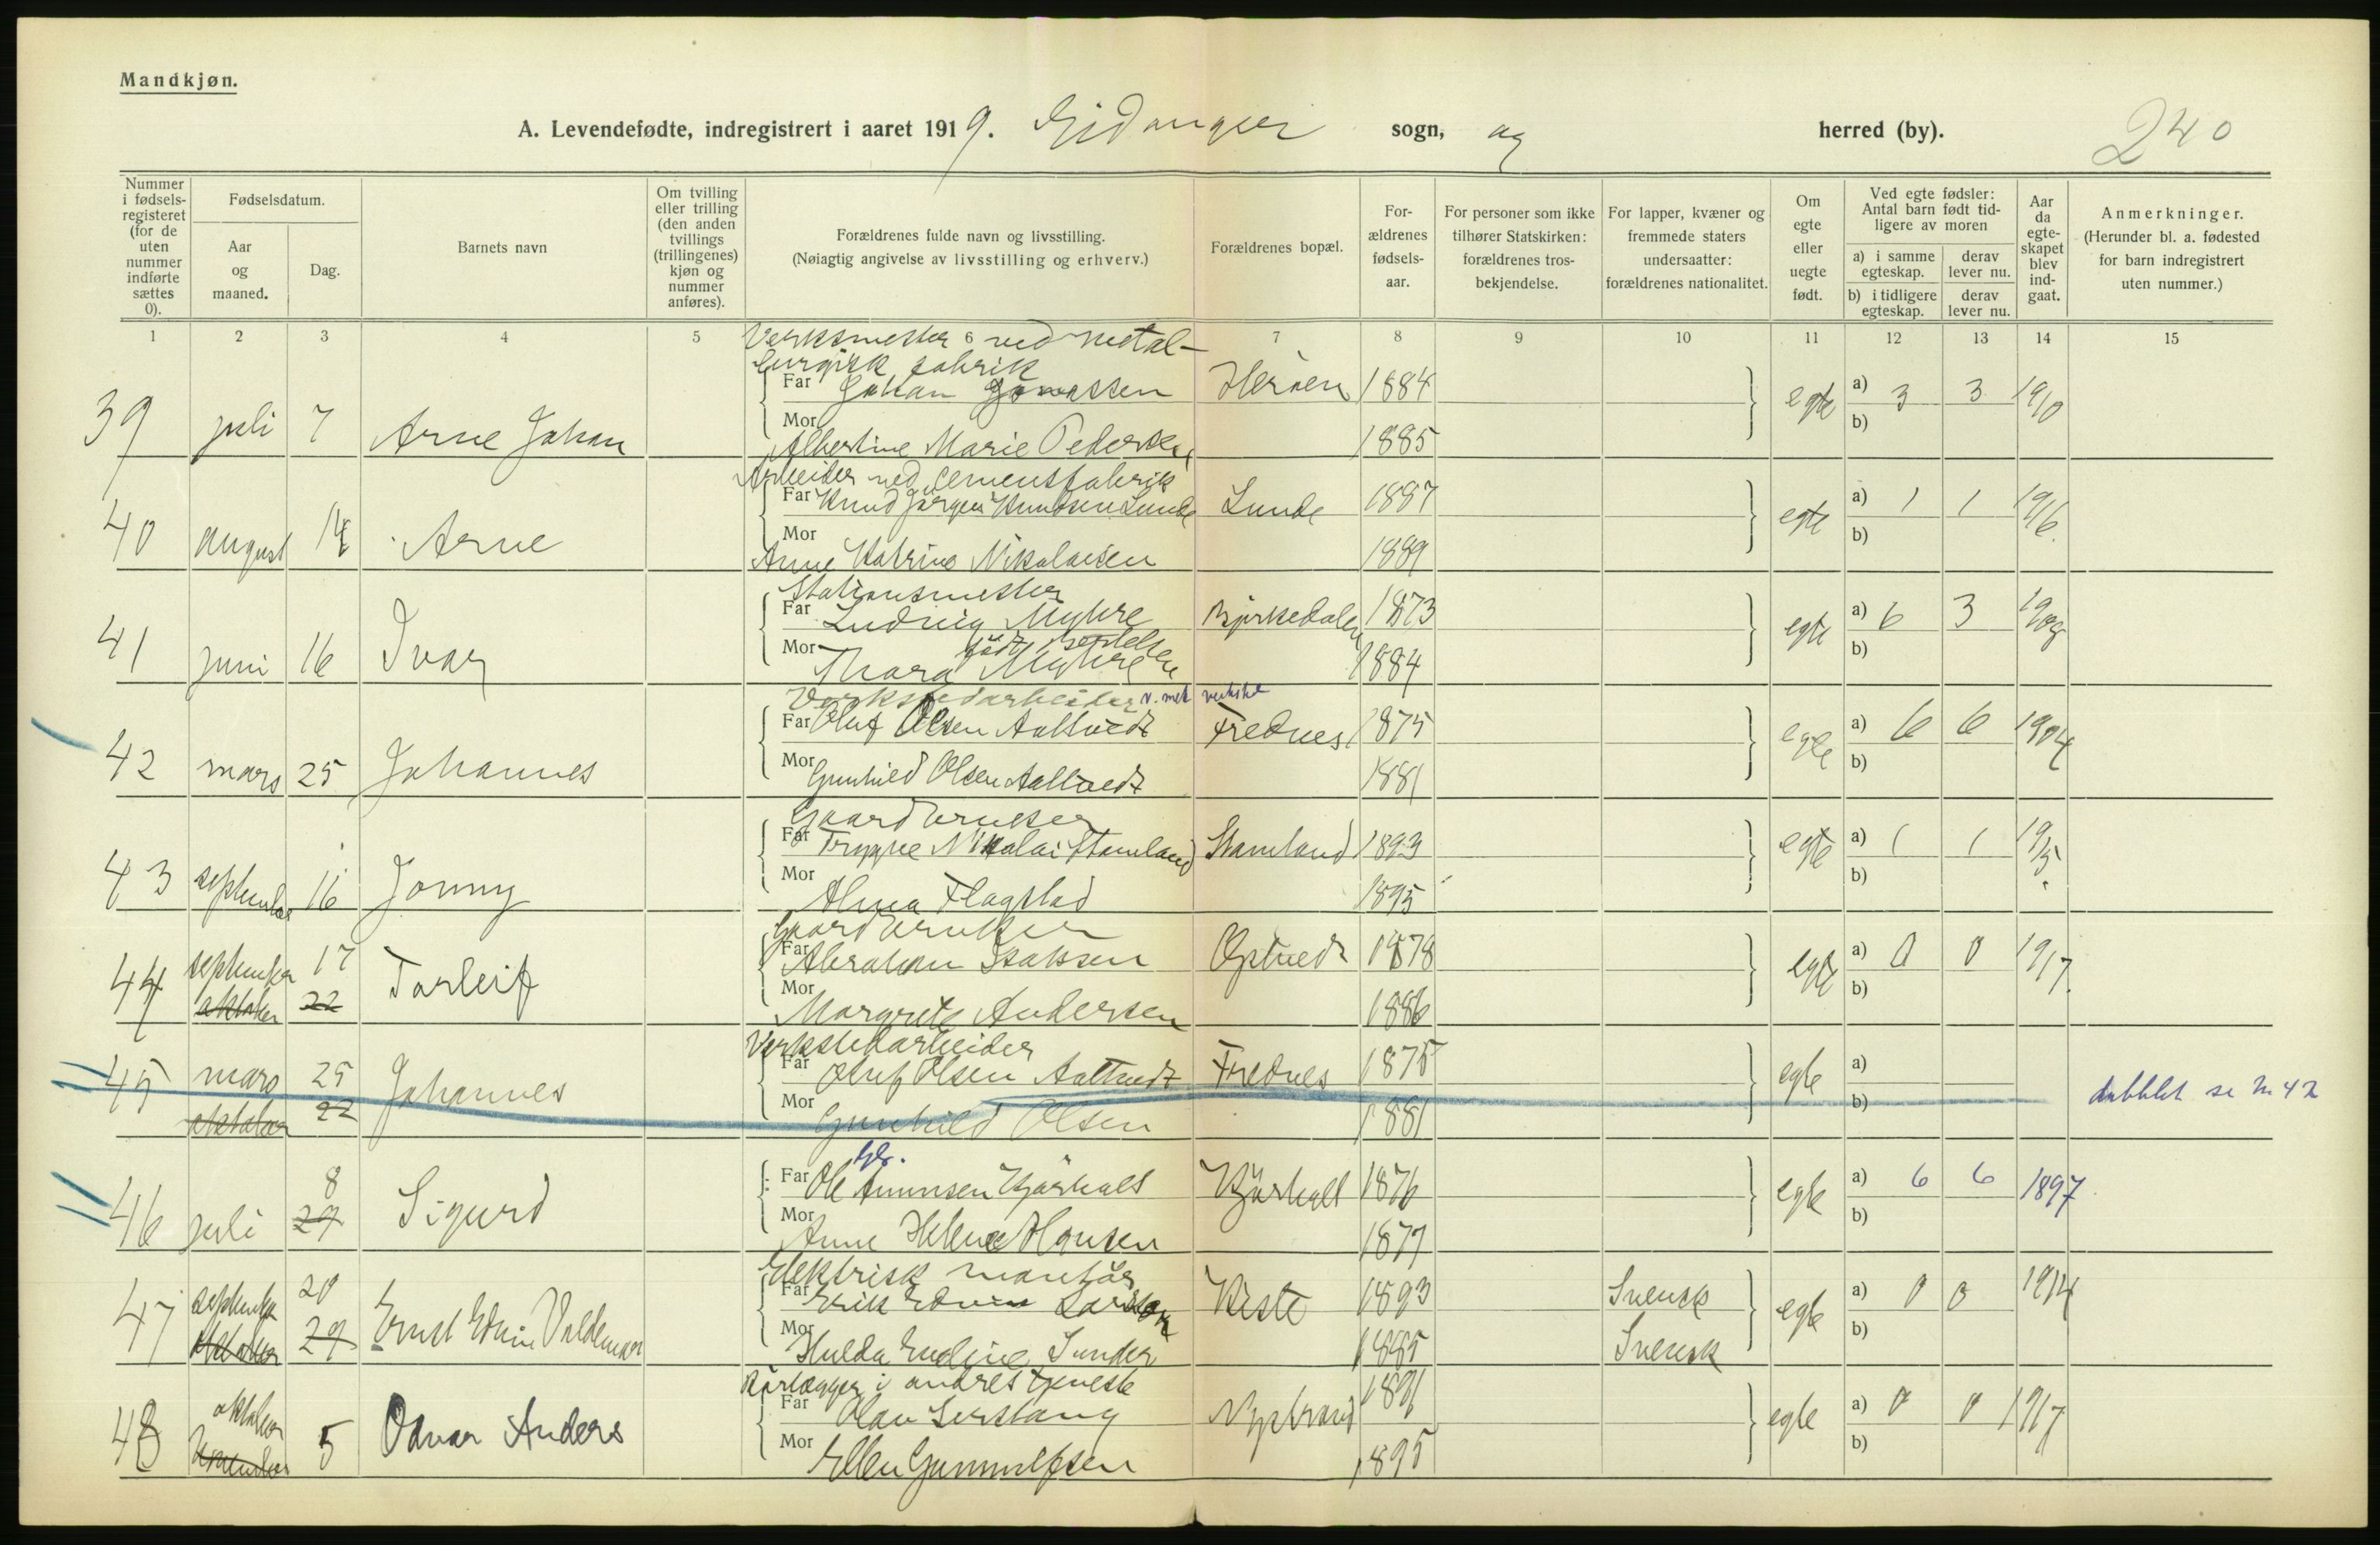 Mandkjøn.
A. Levendefødte, indregistrert i aaret 1919. Eidanger sogn, og herred (by). 240
Nummer i fødsels-registeret (for de uten nummer indførte sættes 0).
Fødselsdatum.
Aar og maaned.
Dag.
Barnets navn
Om tvilling eller trilling (den anden tvillings (trillingenes) kjøn og nummer anføres).
Forældrenes fulde navn og livsstilling.
(Nøiagtig angivelse av livsstilling og erhverv.)
Forældrenes bopæl.
For-ældrenes fødsels-aar.
For personer som ikke tilhører Statskirken: forældrenes tros-bekjendelse.
For lapper, kvæner og fremmede staters undersaatter: forældrenes nationalitet.
Om egte eller uegte født.
Ved egte fødsler: Antal barn født tid-ligere av moren
a) i samme egteskap. derav lever nu.
b) i tidligere egteskap. derav lever nu.
Aar da egte-skapet blev ind-gaat.
Anmerkninger.
(Herunder bl. a. fødested for barn indregistrert uten nummer.)
1 2 3 4 5 6 7 8 9 10 11 12 13 14 15
Verksmester ved metal-
lurgisk fabrik
39 juli 7 Arne Johan Far Johan Jonassen Herøen 1884 egte a) 3 3 1910
Mor Albertine Marie Pedersen 1885 b)
Arbeider ved cementfabrik
40 august 14 Arne Far Knud Jørgen Knudsen Lunde Lunde 1887 egte a) 1 1 1916.
Mor Anne Katrine Nikolaisen 1889 b)
Stationsmester
41 juni 16 Ivar Far Ludvig Myhre Bjørkedalen 1873 egte a) 6 3 1908
Mor Thora Myhre født 1884 b)
Verkstedarbeider v. mek verksted
42 mars 25 Johannes Far Oluf Olsen Aaltvedt Frednes 1875 egte a) 6 6 1904
Mor Gunhild Olsen Aaltvedt 1881 b)
Gaardbruker
43 september 16 Jonny Far Trygve Nikolai Stamland Stamland 1893 egte a) 1 1 1915.
Mor Alma Flagstad 1895 b)
Gaardbruker
44 september 17 Torleif Far Abraham Isaksen Opstvedt 1878 egte a) 0 0 1917.
oktober 22 Mor Margrete Andersen 1886 b)
Verkstedarbeider
45 mars 25 Johannes Far Oluf Olsen Aaltvedt Frednes 1875 egte a)
oktober 22 Mor Gunhild Olsen 1881 b) dubblet se No 42
Gbr.
46 juli 8 29 Sigurd Far Ole Amunsen Kjørholt Kjørholt 1876 egte a) 6 6 1897.
Mor Anne Helene Hansen 1877 b)
Elektrisk montør
47 september 20 Ernst Edvin Valdemar Far Erik Edvin Larsson Heistø 1893 Svensk egte a) 0 0 1914
oktober 29 Mor Hulda Eveline Sunder 1885 Svensk b)
Rørlægger i andres tjeneste
48 oktober 5 Odvar Anders Far Olav Nystrand 1891 egte a) 0 0 1917
Mor Ellen Gunnulfsen 1895 b)